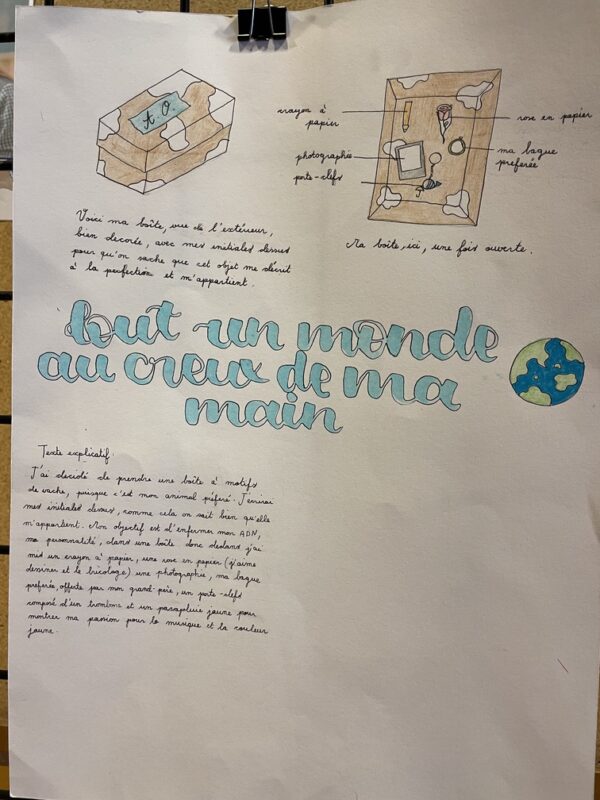 A.O.
Voici ma boîte, vue de l'extérieur,
bien decorée, avec mes initiales dessus
pour qu'on sache que cet objet me décrit
à la perfection et m'appartient.
crayon à
papier
photographie
porte-clefs
rose en papier
ma bague
préférée
Ma boîte, ici, une fois ouverte.
tout un monde
au creux de ma
main
Texte explicatif.
J'ai decidé de prendre une boîte à motifs
de vache, puisque c'est mon animal préféré. J'écrirai
mes initiales dessus, comme cela on sait bien qu'elle
m'appartient. Mon objectif est d'enfermer mon ADN,
ma personnalité, dans une boîte. donc dedans j'ai
mis un crayon à papier, une rose en papier (j'aime
dessiner et le bricolage) une photographie, ma bague
préférée, offerte par mon grand-père, un porte-clefs
composé d'un trombone et un parapluie jaune pour
montrer ma passion pour la musique et la couleur
jaune.